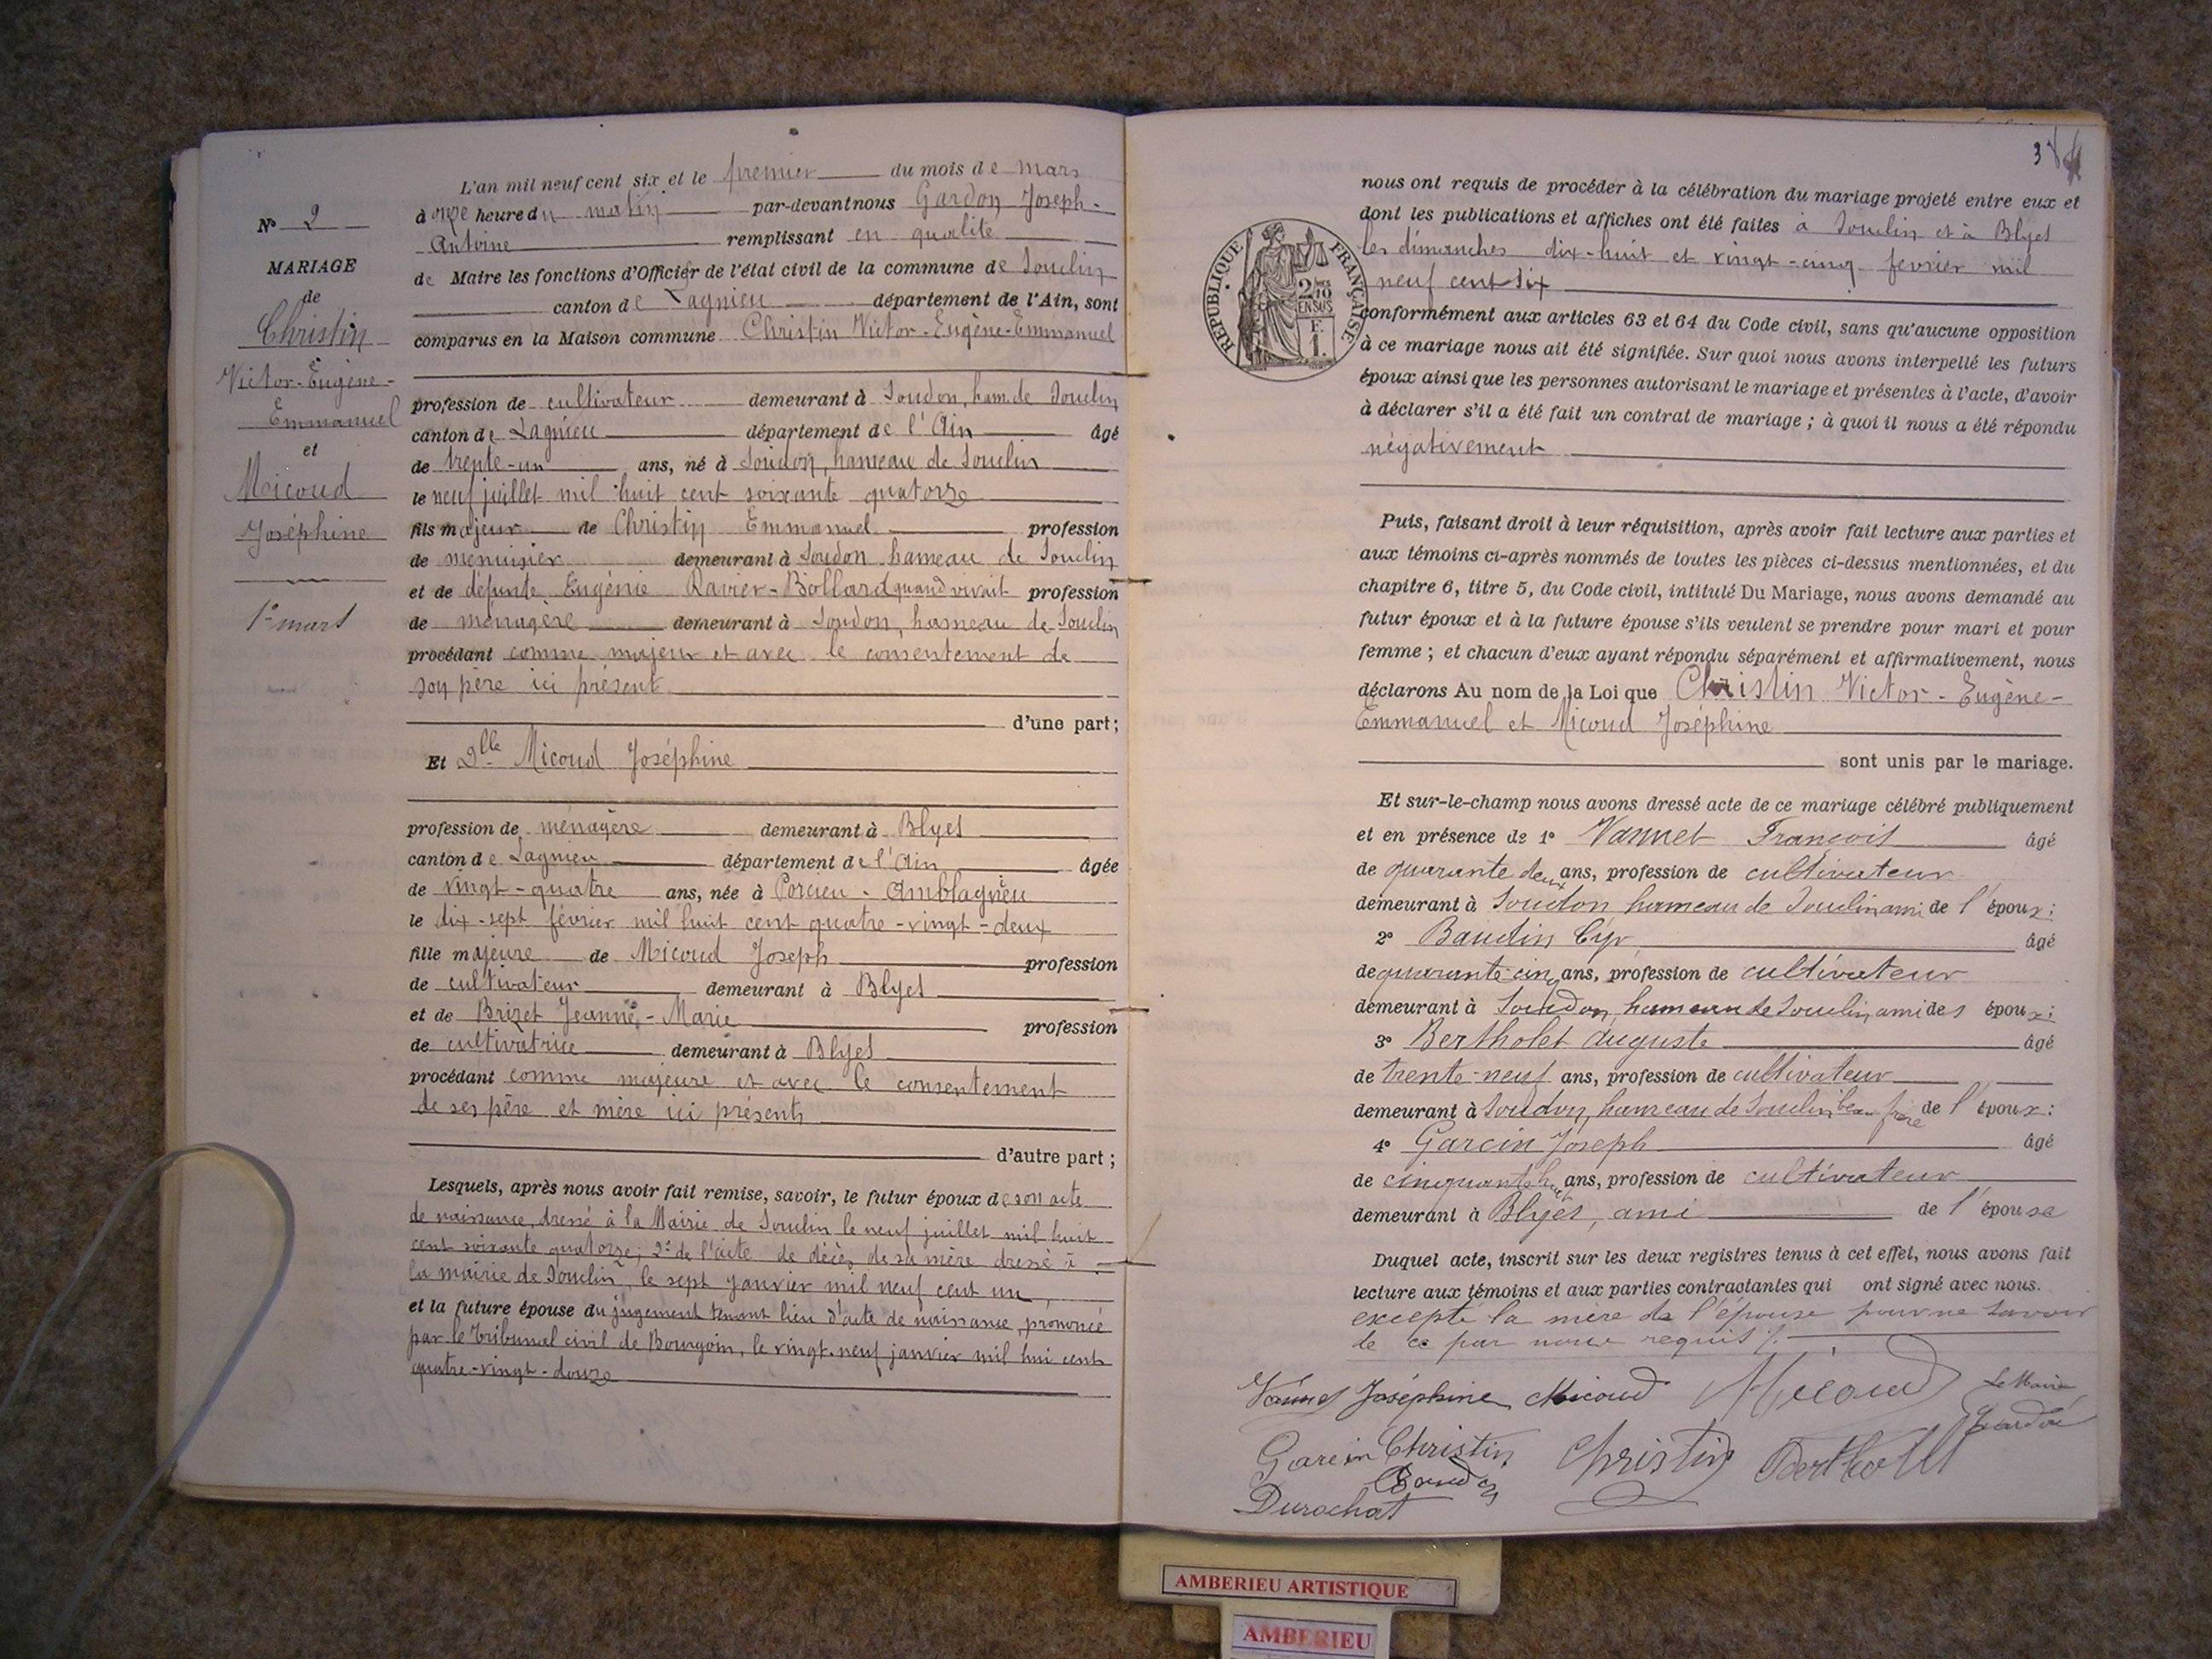 L'an mil neuf cent six et le premier du mois de mars
à onze heure du matin par-devant nous Gardon Joseph-
Antoine remplissant en qualité
de Maire les fonctions d'Officier de l'état civil de la commune de Souclin
canton de Lagnieu département de l'Ain, sont
comparus en la Maison commune Christin Victor-Eugène-Emmanuel
profession de cultivateur demeurant à Soudon, ham. de Souclin
canton de Lagnieu département de l'Ain âgé
de trente-un ans, né à Soudon, hameau de Souclin
le neuf juillet mil huit cent soixante quatorze
fils majeur de Christin Emmanuel profession
de menuisier demeurant à Soudon hameau de Souclin
et de défunte Eugénie Ravier-Bollard quand vivait profession
de ménagère demeurant à Soudon, hameau de Souclin
procédant comme majeur et avec le consentement de
son père ici présent
d'une part;
Et Dlle Micoud Joséphine
profession de ménagère demeurant à Blyes
canton de Lagnieu département de l'Ain âgée
de vingt-quatre ans, née à Porcieu-Amblagnieu
le dix-sept février mil huit cent quatre-vingt-deux
fille majeure de Micoud Joseph profession
de cultivateur demeurant à Blyes
et de Brizet Jeanne-Marie profession
de cultivatrice demeurant à Blyes
procédant comme majeure et avec le consentement
de ses père et mère ici présents
d'autre part;
Lesquels, après nous avoir fait remise, savoir, le futur époux de son acte
de naissance, dressé à la Mairie de Souclin le neuf juillet mil huit
cent soixante quatorze; 2° de l'acte de décès de sa mère dressé à
la mairie de Souclin, le sept janvier mil neuf cent un,
et la future épouse du jugement tenant lieu d'acte de naissance, prononcé
par le Tribunal civil de Bourgoin, le vingt-neuf janvier mil hui cent
quatre-vingt-douze
N° 2
MARIAGE
de
Christin
Victor-Eugène-
Emmanuel
et
Micoud
Joséphine
1er mars
3
RÉPUBLIQUE FRANÇAISE
2/10
EN SUS
F.
1.
nous ont requis de procéder à la célébration du mariage projeté entre eux et
dont les publications et affiches ont été faites à Souclin et à Blyes
les dimanches dix-huit et vingt-cinq fevrier mil
neuf cent six
conformément aux articles 63 et 64 du Code civil, sans qu'aucune opposition
à ce mariage nous ait été signifiée. Sur quoi nous avons interpellé les futurs
époux ainsi que les personnes autorisant le mariage et présentes à l'acte, d'avoir
à déclarer s'il a été fait un contrat de mariage; à quoi il nous a été répondu
négativement
Puis, faisant droit à leur réquisition, après avoir fait lecture aux parties et
aux témoins ci-après nommés de toutes les pièces ci-dessus mentionnées, et du
chapitre 6, titre 5, du Code civil, intitulé Du Mariage, nous avons demandé au
futur époux et à la future épouse s'ils veulent se prendre pour mari et pour
femme; et chacun d'eux ayant répondu séparément et affirmativement, nous
déclarons Au nom de la Loi que Christin Victor-Eugène-
Emmanuel et Micoud Joséphine
sont unis par le mariage.
Et sur-le-champ nous avons dressé acte de ce mariage célébré publiquement
et en présence de 1° Vannet François âgé
de quarante deux ans, profession de cultivateur
demeurant à Soudon hameau de Souclin ami de l'époux;
2° Baudin Cyr âgé
de quarante-cinq ans, profession de cultivateur
demeurant à Soudon, hameau de Souclin ami des époux;
3° Bertholet Auguste âgé
de trente-neuf ans, profession de cultivateur
demeurant à Soudon, hameau de Souclin beau frère de l'époux:
4° Garcin Joseph âgé
de cinquante huit ans, profession de cultivateur
demeurant à Blyes, ami de l'épouse
Duquel acte, inscrit sur les deux registres tenus à cet effet, nous avons fait
lecture aux témoins et aux parties contractantes qui ont signé avec nous.
excepté la mère de l'épouse pour ne savoir
de ce par nous requis ./.
Vannet Joséphine Micoud Micoud Le Maire
Gardon
Garcin Christin Christin Bertholet
Baudin
Durochat
AMBERIEU ARTISTIQUE
AMBERIEU